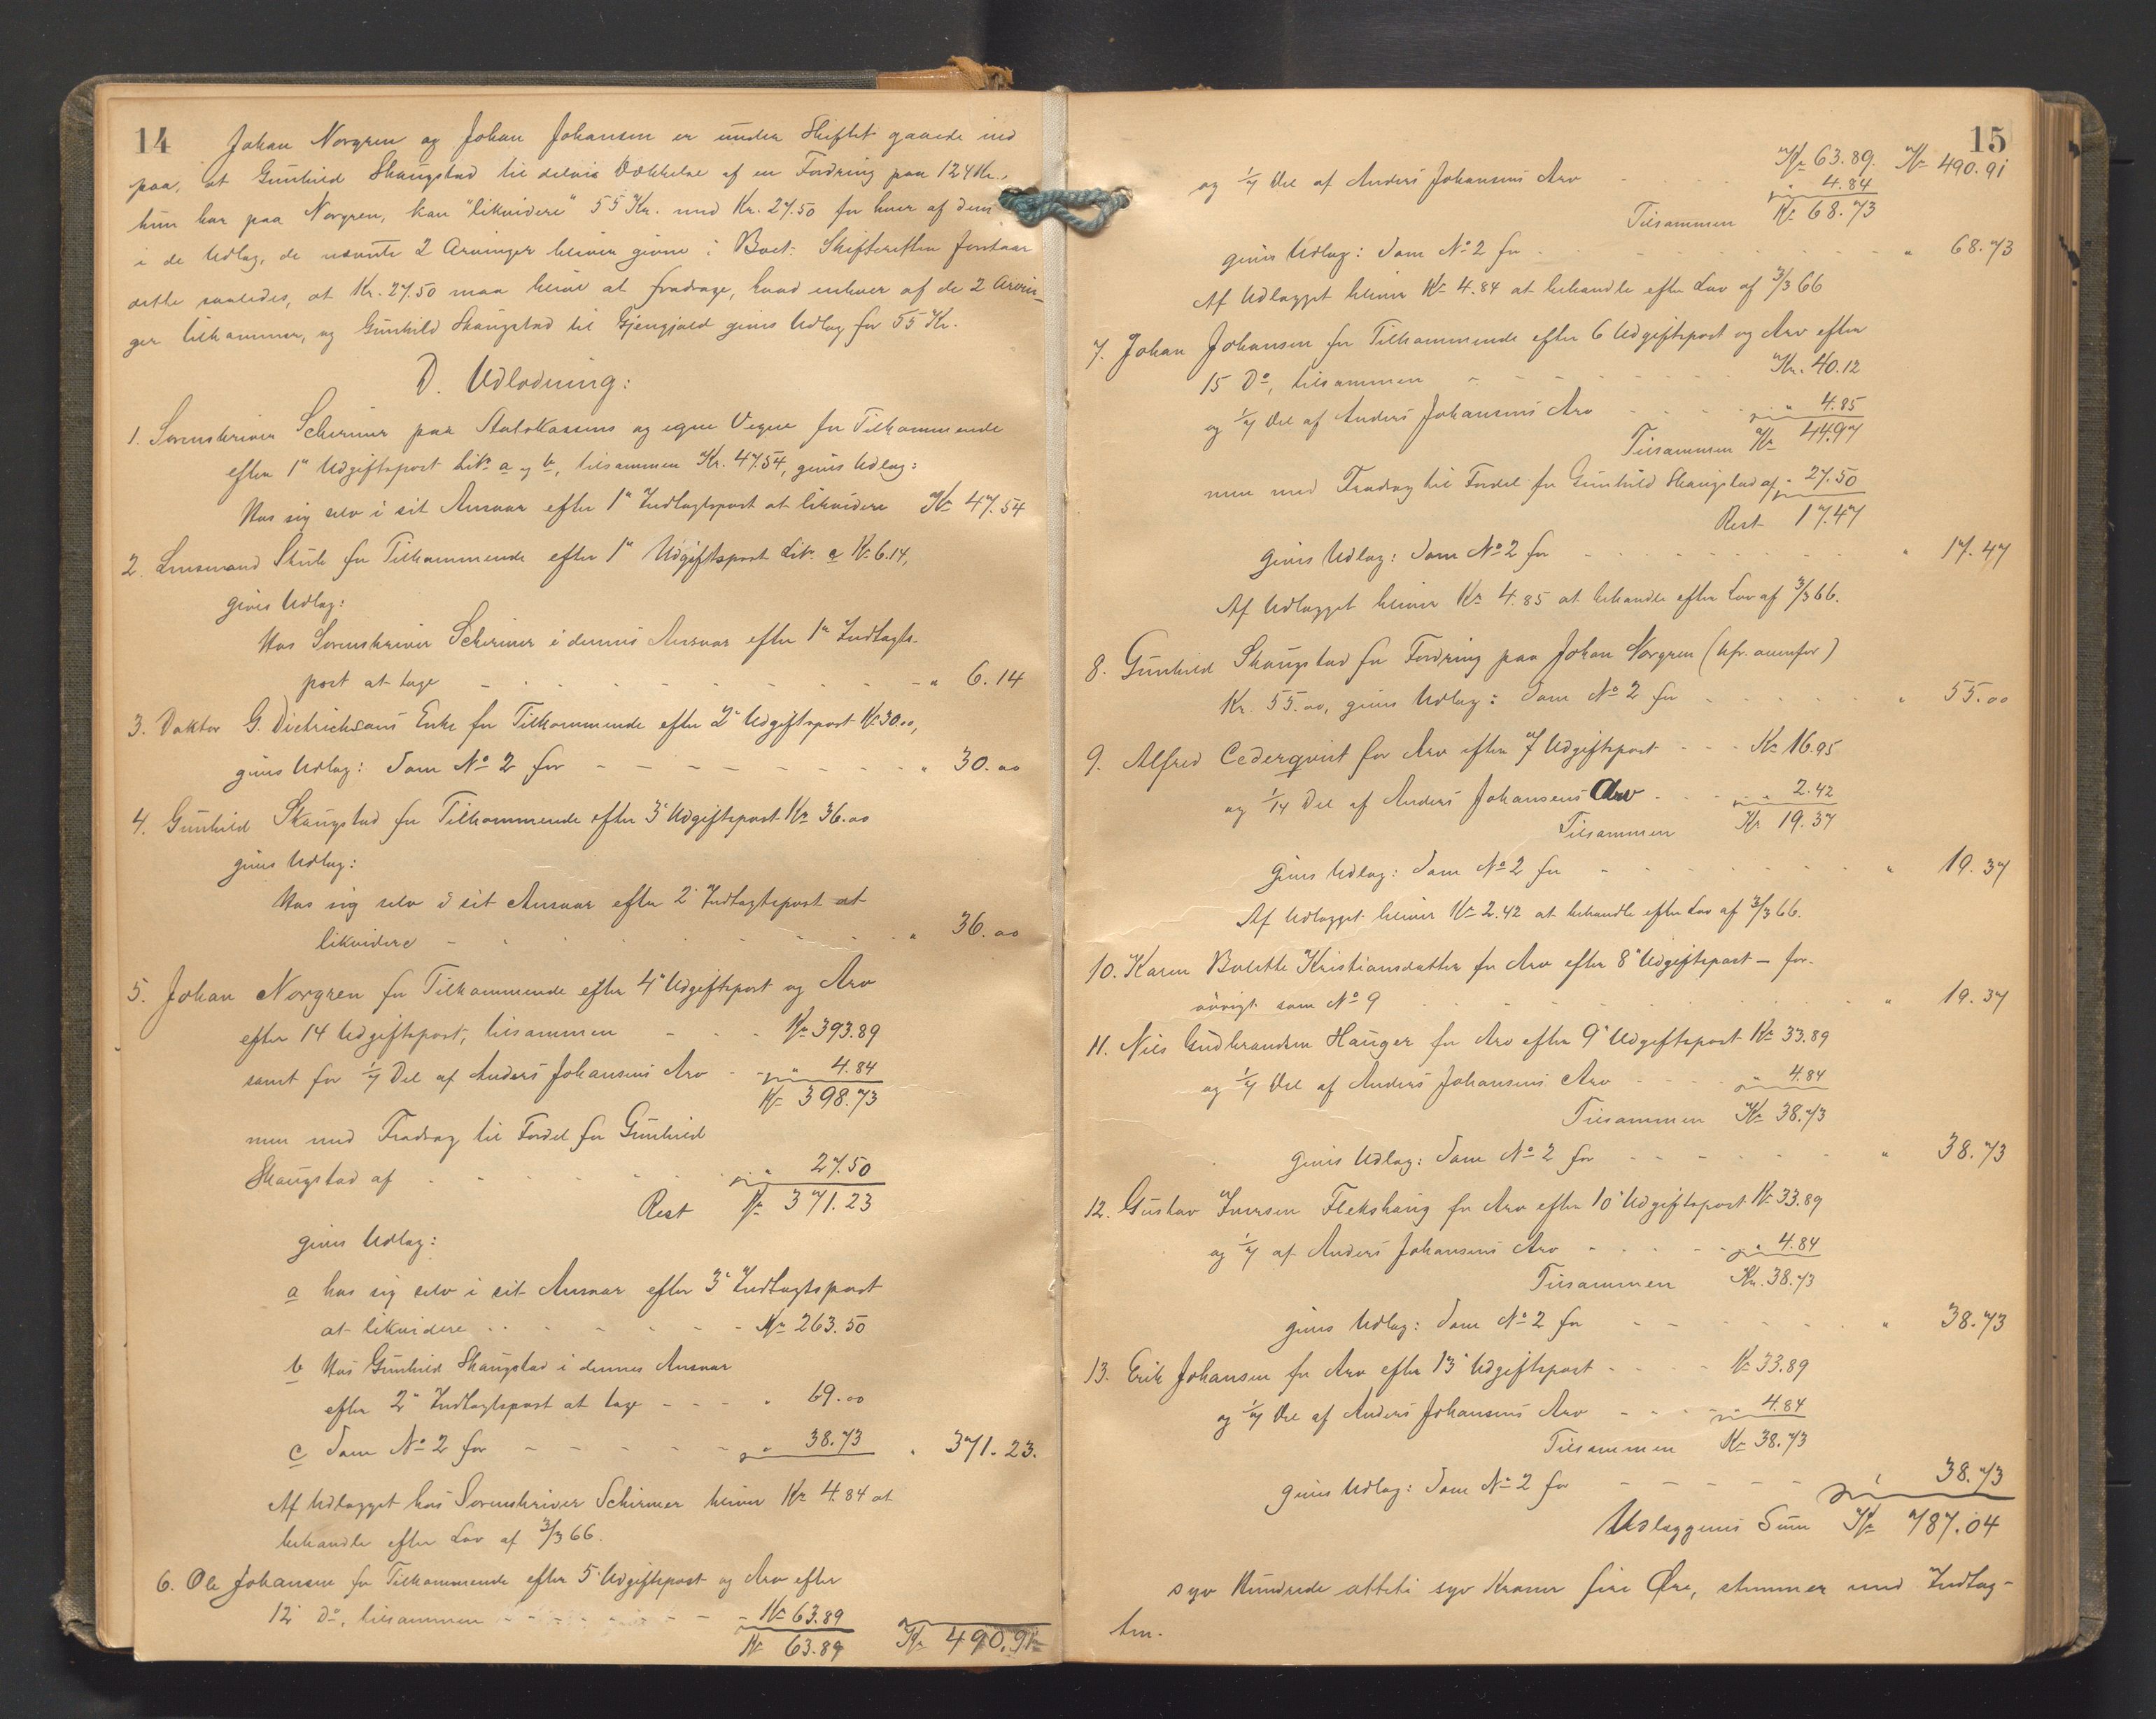 14
Johan Norgren og Johan Johansen er under Skiftet gaaede ind
paa, at Gunhild Skaugstad til delvis Dækkelse af en Fordring paa 124 Kr.,
hun har paa Norgren, kan "likvidere" 55 Kr. med Kr. 27.50 for hver af dem
i de Udlæg, de nævnte 2 Arvinger bliver givne i Boet. Skifteretten forstaar
dette saaledes, at Kr. 27.50 maa blive at fradrage, hvad enhver af de 2 Arvin-
ger tilkommer, og Gunhild Skaugstad til Gjengjæld gives Udlæg for 55 Kr.
D. Udlodning:
1. Sorenskriver Schirmer paa Statskassens og egne Vegne for Tilkommende
efter 1ste Udgiftspost Litr. a og b, tilsammen Kr. 47.54, gives Udlæg:
Hos sig selv i sit Ansvar efter 1ste Indtægtspost at likvidere Kr. 47.54
2. Lensmand Skule for Tilkommende efter 1ste Udgiftspost Litr. c Kr. 6.14,
gives Udlæg:
Hos Sorenskriver Schirmer i dennes Ansvar efter 1ste Indtægts-
post at tage - - - " 6.14
3. Doktor G. Dietrichsons Enke for Tilkommende efter 2' Udgiftspost Kr. 30.00,
gives Udlæg: Som No 2 for - - - " 30.00
4. Gunhild Skaugstad for Tilkommende efter 3' Udgiftspost Kr. 36.00
gives Udlæg:
Hos sig selv i sit Ansvar efter 2' Indtægtspost at
likvidere - - - " 36.00
5. Johan Norgren for Tilkommende efter 4' Udgiftspost og Arv
efter 14 Udgiftspost, tilsammen - - - Kr. 393.89
samt for 1/7 Del af Anders Johansens Arv - " 4.84
Kr. 398.73
men med Fradrag til Fordel for Gunhild
Skaugstad af - - - " 27.50
Rest Kr. 371.23
gives Udlæg:
a hos sig selv i sit Ansvar efter 3' Indtægtspost
at likvidere - - - Kr. 263.50
b Hos Gunhild Skaugstad i dennes Ansvar
efter 2' Indtægtspost at tage - - - " 69.00
c Som No 2 for - - - " 38.73 " 371.23.
Af Udlægget hos Sorenskriver Schirmer bliver Kr. 4.84 at
behandle efter Lov af 3/3 66.
6. Ole Johansen for Tilkommende efter 5' Udgiftspost og Arv efter
12' Do, tilsammen - - - Kr. 63.89
Kr. 63.89 Kr. 490.91
15
Kr. 63.89. Kr. 490.91
og 1/7 Del af Anders Johansens Arv - - - " 4.84
Tilsammen Kr. 68.73
gives Udlæg: Som No 2 for - - - " 68.73
Af Udlægget bliver Kr. 4.84 at behandle efter Lov af 3/3 66
7. Johan Johansen for Tilkommende efter 6 Udgiftspost og Arv efter
15 Do, tilsammen - - - Kr. 40.12
og 1/7 Del af Anders Johansens Arv - - - " 4.85
Tilsammen Kr. 44.97
men med Fradrag til Fordel for Gunhild Skaugstad af " 27.50
Rest 17.47
gives Udlæg: Som No 2 for - - - " 17.47
Af Udlægget bliver Kr. 4.85 at behandle efter Lov af 3/3 66.
8. Gunhild Skaugstad for Fordring paa Johan Norgren (kfr. ovenfor)
Kr. 55.00, gives Udlæg: Som No 2 for - - - " 55.00
9. Alfred Cederqvist for Arv efter 7 Udgiftspost - - - Kr. 16.95
og 1/14 Del af Anders Johansens Arv - - - " 2.42
Tilsammen Kr. 19.37
gives Udlæg: Som No 2 for - - - " 19.37
Af Udlægget bliver Kr. 2.42 at behandle efter Lov af 3/3 66.
10. Karen Bolette Kristiansdatter for Arv efter 8' Udgiftspost - for-
øvrigt som No 9 - - - " 19.37
11. Nils Gudbrandsen Hauger for Arv efter 9' Udgiftspost Kr. 33.89
og 1/7 Del af Anders Johansens Arv - - - " 4.84
Tilsammen Kr. 38.73
gives Udlæg: Som No 2 for - - - " 38.73
12. Gustav Iversen Flekshaug for Arv efter 10' Udgiftspost Kr. 33.89
og 1/7 af Anders Johansens Arv - - - " 4.84
Tilsammen Kr. 38.73
gives Udlæg: Som No 2 for - - - " 38.73
13. Erik Johansen for Arv efter 13' Udgiftspost - - - Kr. 33.89
og 1/7 Del af Anders Johansens Arv - - - " 4.84
Tilsammen Kr. 38.73
gives Udlæg: Som No 2 for - - - " 38.73
Udlæggenes Sum Kr. 787.04
syv Hundrede otteti syv Kroner fire Øre, stemmer med Indtæg-
ten.